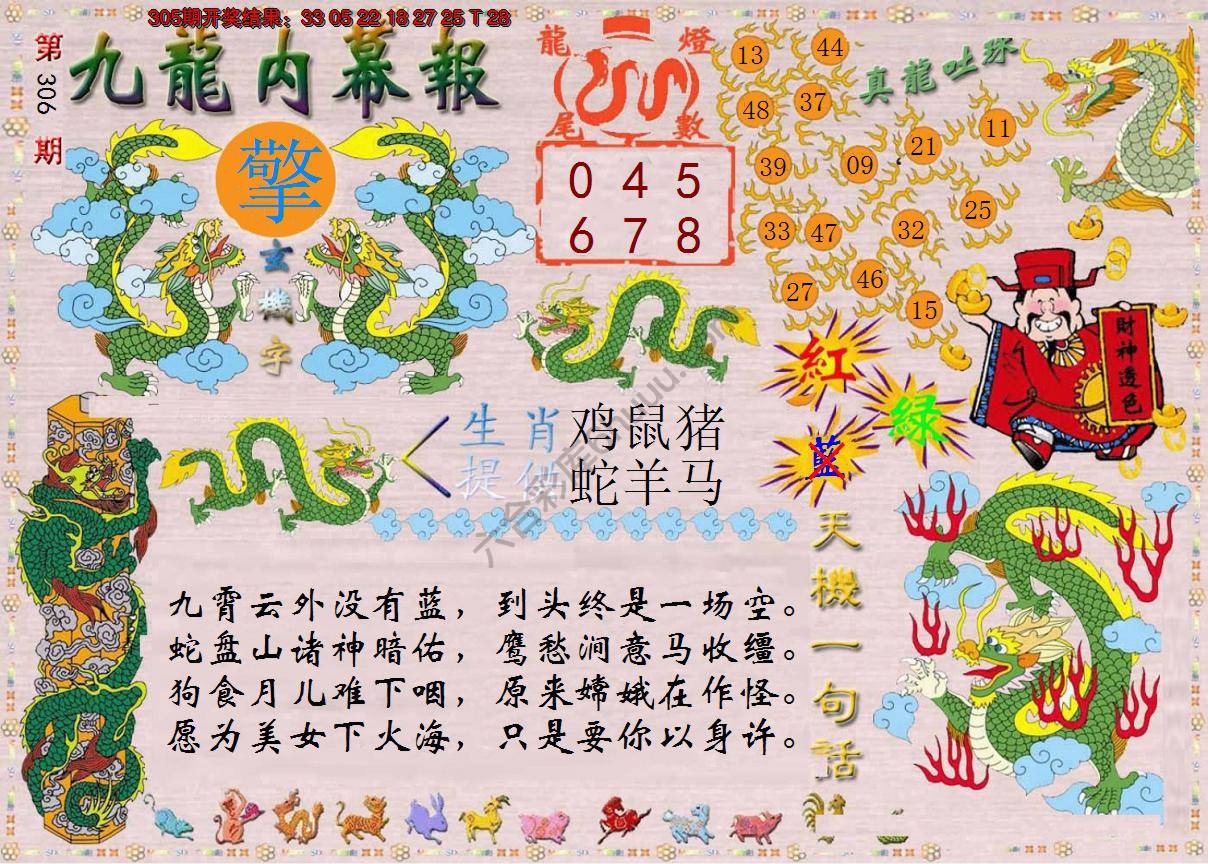 305期开奖结果：33 05 22 18 27 25 T 28
第306期
九龍内幕報
擎
玄機字
龍燈
尾數
0 4 5
6 7 8
真龍吐珠
13
44
48
37
11
21
39
09
25
33
47
32
46
27
15
財神透色
紅
綠
藍
生肖 鸡鼠猪
提供 蛇羊马
天機一句話
九霄云外没有蓝，到头终是一场空。
蛇盘山诸神暗佑，鹰愁涧意马收缰。
狗食月儿难下咽，原来嫦娥在作怪。
愿为美女下火海，只是要你以身许。